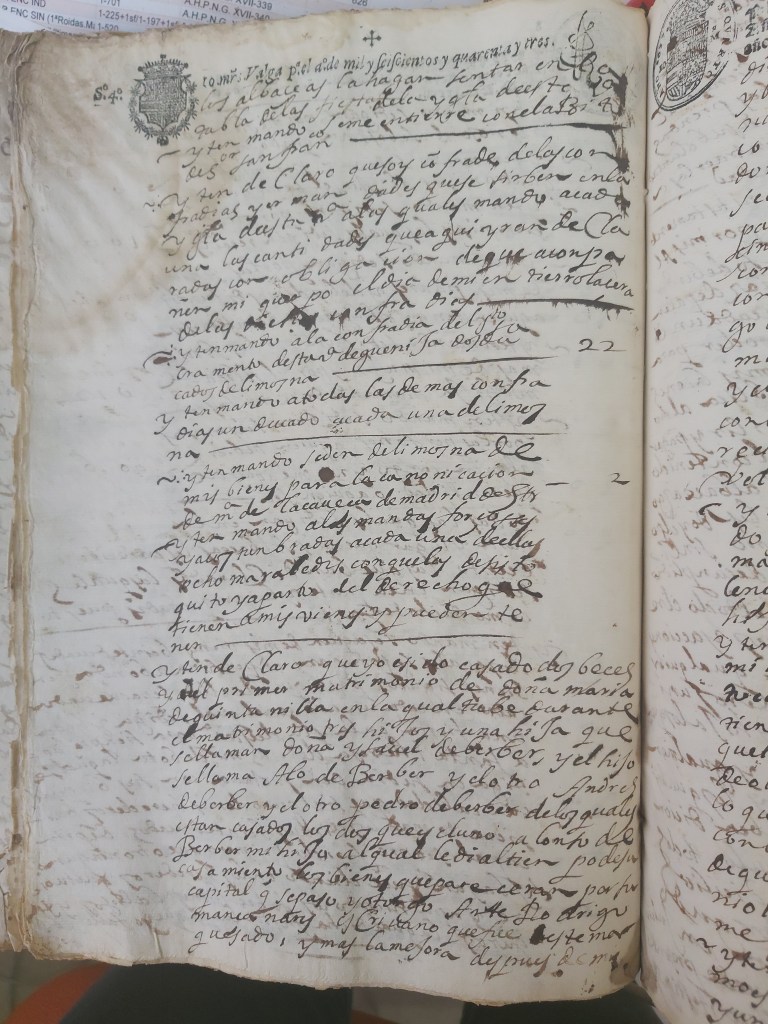 IND 1-701 A.H.P.N.G. XVII-339 628
FNC SIN (1ªRoidas.Mi 1-225+1sf/1-197+1+5 A.H.P.N.G. XVII-340
1-520
Sº.4º.
para el año de mil y seiscientos y quarenta y tres.
los albaceas la hagan sentar en
tabla de las fiestas de la yglª de este
yten mando se me entierre con el abi
des or san franco
yten de Claro que soy cofrade de las con
fradias y erman dades que se sirben en la
yglª desta a las quales mando a cada
una las canti dades que aqui yran de Cla
radas con obligacion de que aconpa
ñen mi querpo el dia de mi en tierro la cera
de las con fra dias
yten mando a la con fradia del ssmo
cra mento desta de guenixa dos du
cados de limosna
22
yten mando a todas las de mas confra
dias un ducado a cada una de limos
na
yten mando se den de limosna de
mis bienes para la canonicacion
de mª de la caveca de madrid
2
yten mando a las mandas forcosas
y acostunbradas a cada una de ellas
ocho maravedis con que las desisto
quito y aparto del derecho que
tienen a mis vienes y pueden te
ner
yten de Claro que yo e sido casado dos beces
y del primer matrimonio de doña maria
de quintanilla en la qual tube durante
el matrimonio tres hijos y una hija que
se llaman doña ysauel de berber y el hijo
se llama Alo de Berber y el otro Andres
de berber y el otro pedro de berber de los quales
estan casados los dos que es el uno alonso de
Berber mi hijo al qual le di al tienpo de su
casamiento los bienes que pare ceran por su
capital q se paso y otorgo Ante Rodrigo
mancanares esCribano que fue deste mar
quesado, y mas la mejora despues de